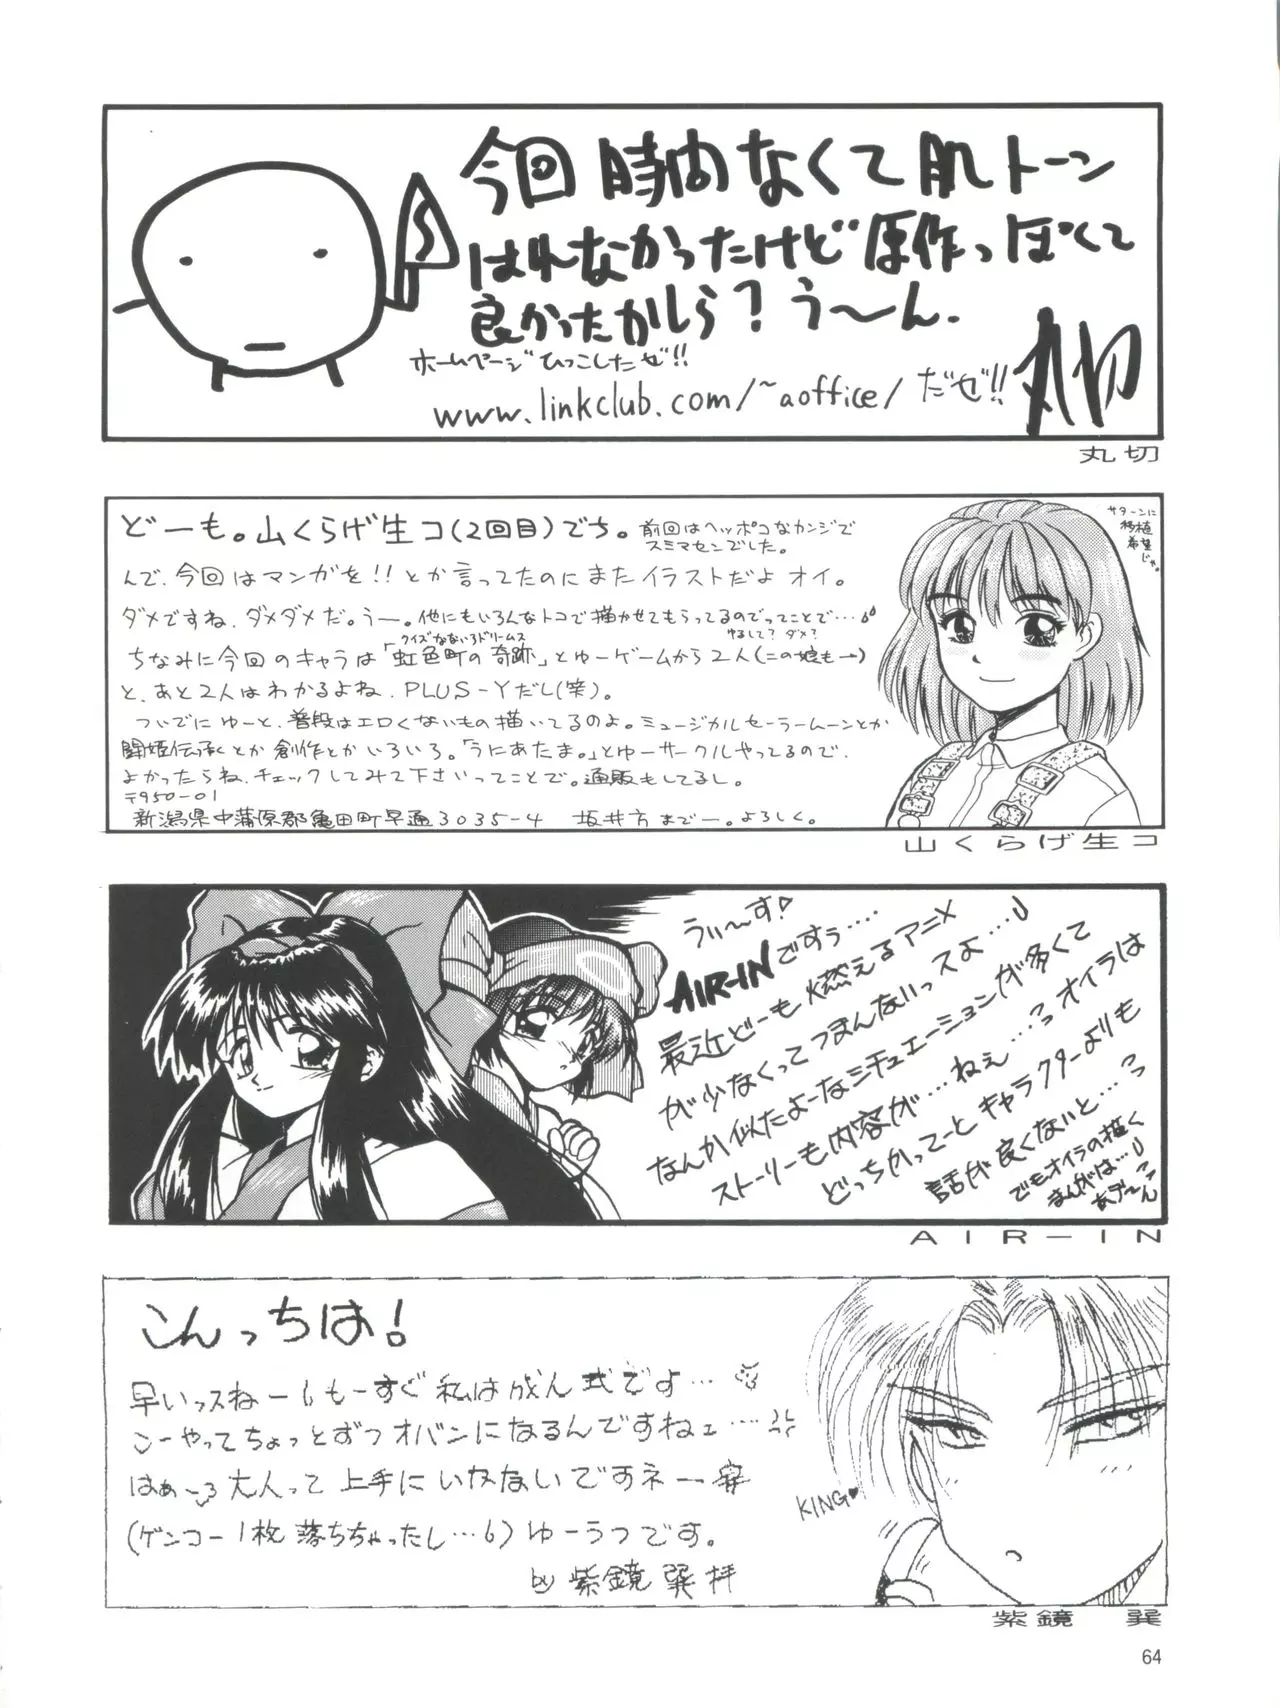 今回時間なくて肌トーン
はれなかったけど原作っぽくて
良かったかしら?う〜ん.
ホームページひっこしたぜ!!
www.linkclub.com/~aoffice/だぜ!!
丸切
丸切
どーも。山くらげ生コ(2回目)でち。前回はヘッポコなカンジで
スミマセンでした。
んで、今回はマンガを!!とか言ってたのにまたイラストだよオイ。
ダメですね、ダメダメだ。うー。他にもいろんなトコで描かせてもらってるのでってことで…
クイズなないろドリームス
ゆるして?ダメ?
ちなみに今回のキャラは「虹色町の奇跡」とゆーゲームから2人(この娘も→)
と、あと2人はわかるよね、PLUS-Yだし(笑)。
ついでにゆーと、普段はエロくないもの描いてるのよ。ミュージカルセーラームーンとか
闘姫伝承とか創作とかいろいろ。「うにあたま。」とゆーサークルやってるので、
よかったらね、チェックしてみて下さいってことで。通販もしてるし。
〒950-01
新潟県中蒲原郡亀田町早通3035-4 坂井方までー。よろしく。
サターンに
移植
希望
じゃ。
山くらげ生コ
うぃ〜す!
AIR-INですぅ…
最近どーも燃えるアニメ
が少なくってつまんないっスよ…
なんか似たよーなシチュエーションが多くて
ストーリーも内容が…ねぇ…っオイラは
どっちかってーとキャラクターよりも
話が良くないと…っ
でもオイラの描く
まんがは…
あデ〜ん
AIR-IN
こんっちは!
早いっスねー もーすぐ私は成人式です…
こーやってちょっとずつオバンになるんですねェ…
はぁ〜っ大人って上手にいかないですネー
(ゲンコー1枚落ちちゃったし…)ゆーうつです。
by 紫鏡 巽 拝
KING♥
紫鏡 巽
64